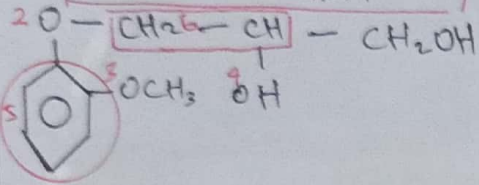 2 O - CH₂ 6 - CH - CH₂OH
3 OCH₃ 4 OH
5